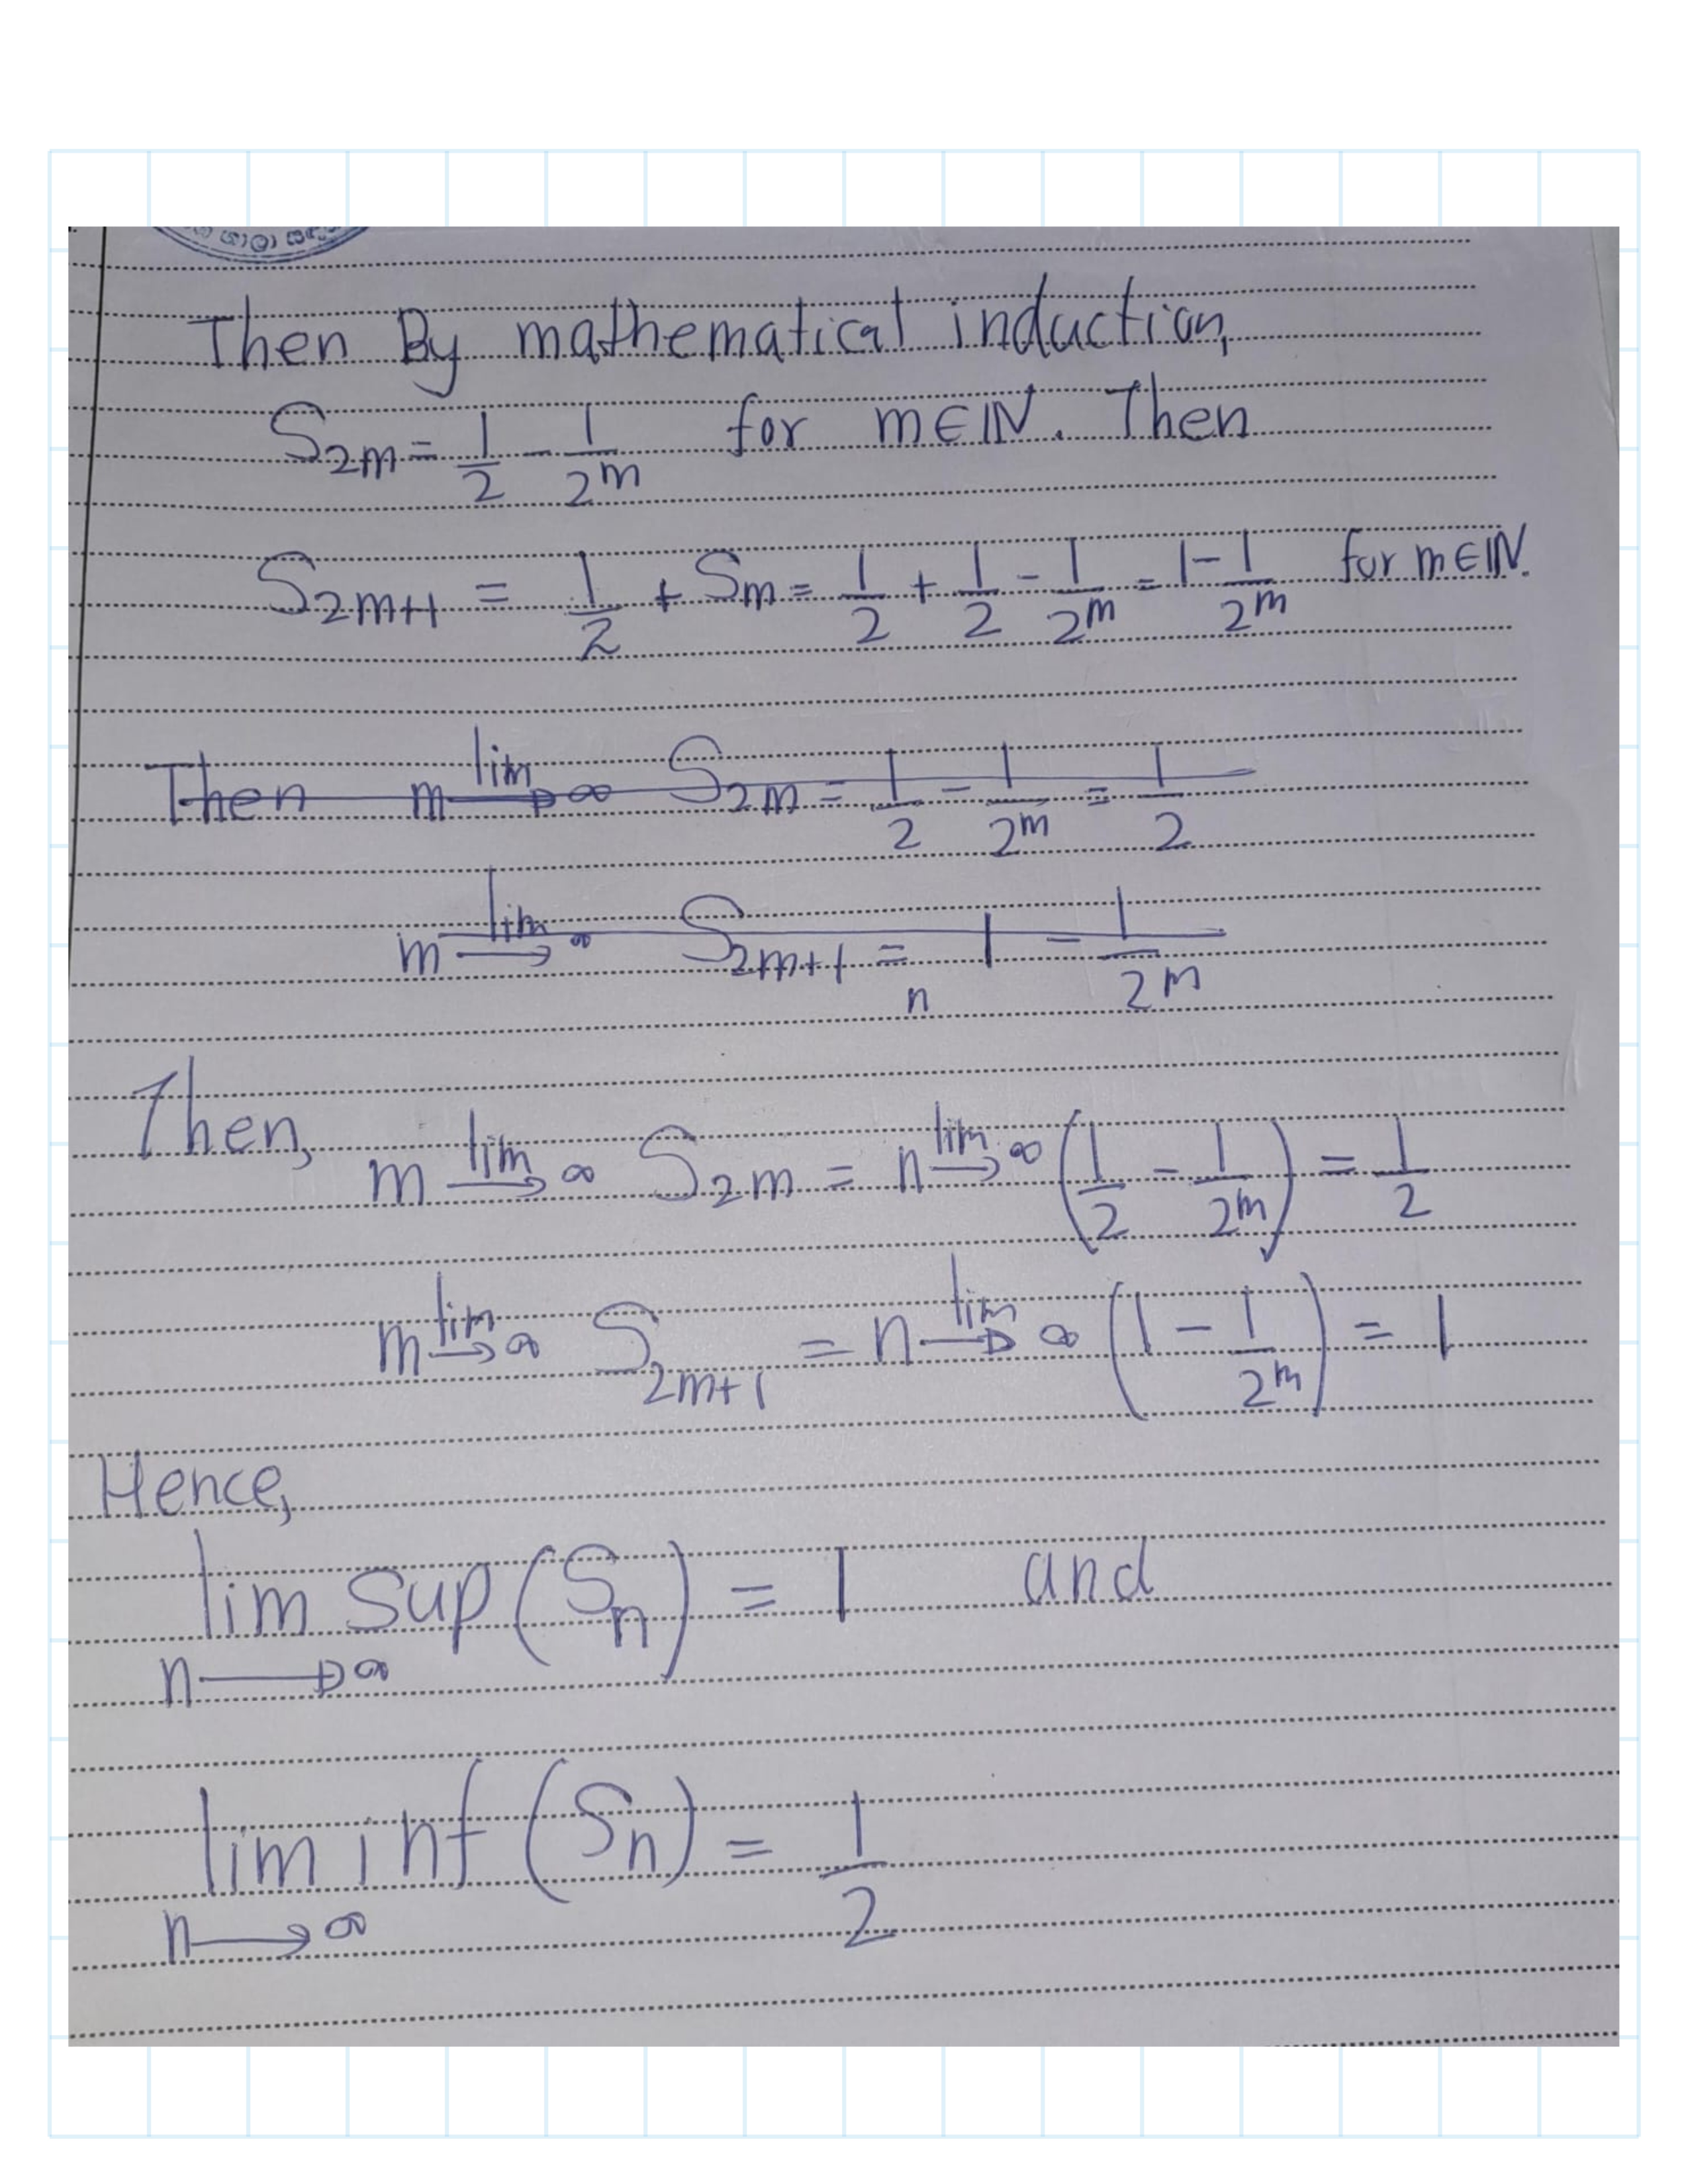 Then By mathematical induction,
S_{2m} = \frac{1}{2} - \frac{1}{2^m} for m ∈ ℕ. Then
S_{2m+1} = \frac{1}{2} + S_m = \frac{1}{2} + \frac{1}{2} - \frac{1}{2^m} = 1 - \frac{1}{2^m} for m ∈ ℕ.
Then lim_{m→∞} S_{2m} = \frac{1}{2} - \frac{1}{2^m} = \frac{1}{2}
lim_{m→∞} S_{2m+1} = 1 - \frac{1}{2^m}
n
Then, lim_{m→∞} S_{2m} = lim_{n→∞} (\frac{1}{2} - \frac{1}{2^m}) = \frac{1}{2}
lim_{m→∞} S_{2m+1} = lim_{n→∞} (1 - \frac{1}{2^m}) = 1
Hence,
lim sup_{n→∞} (S_n) = 1 and
lim inf_{n→∞} (S_n) = \frac{1}{2}